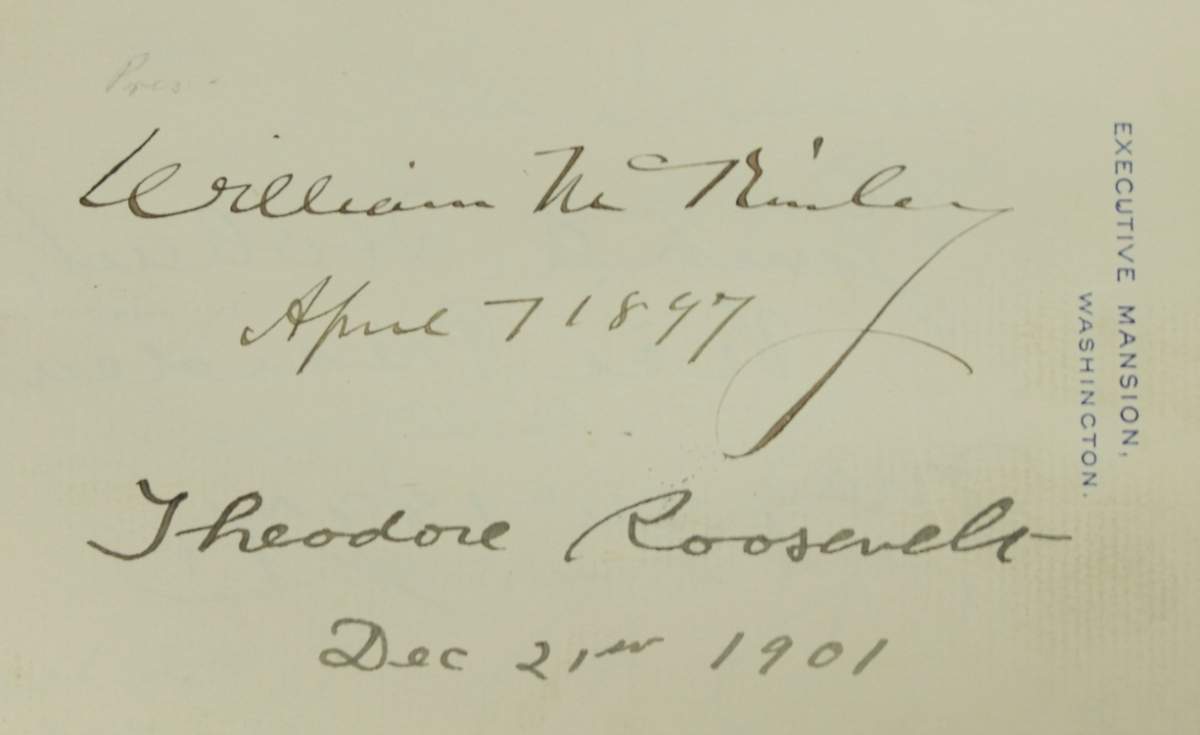 Pres.
William McKinley
April 7 1897
Theodore Roosevelt
Dec 21st 1901
EXECUTIVE MANSION,
WASHINGTON.